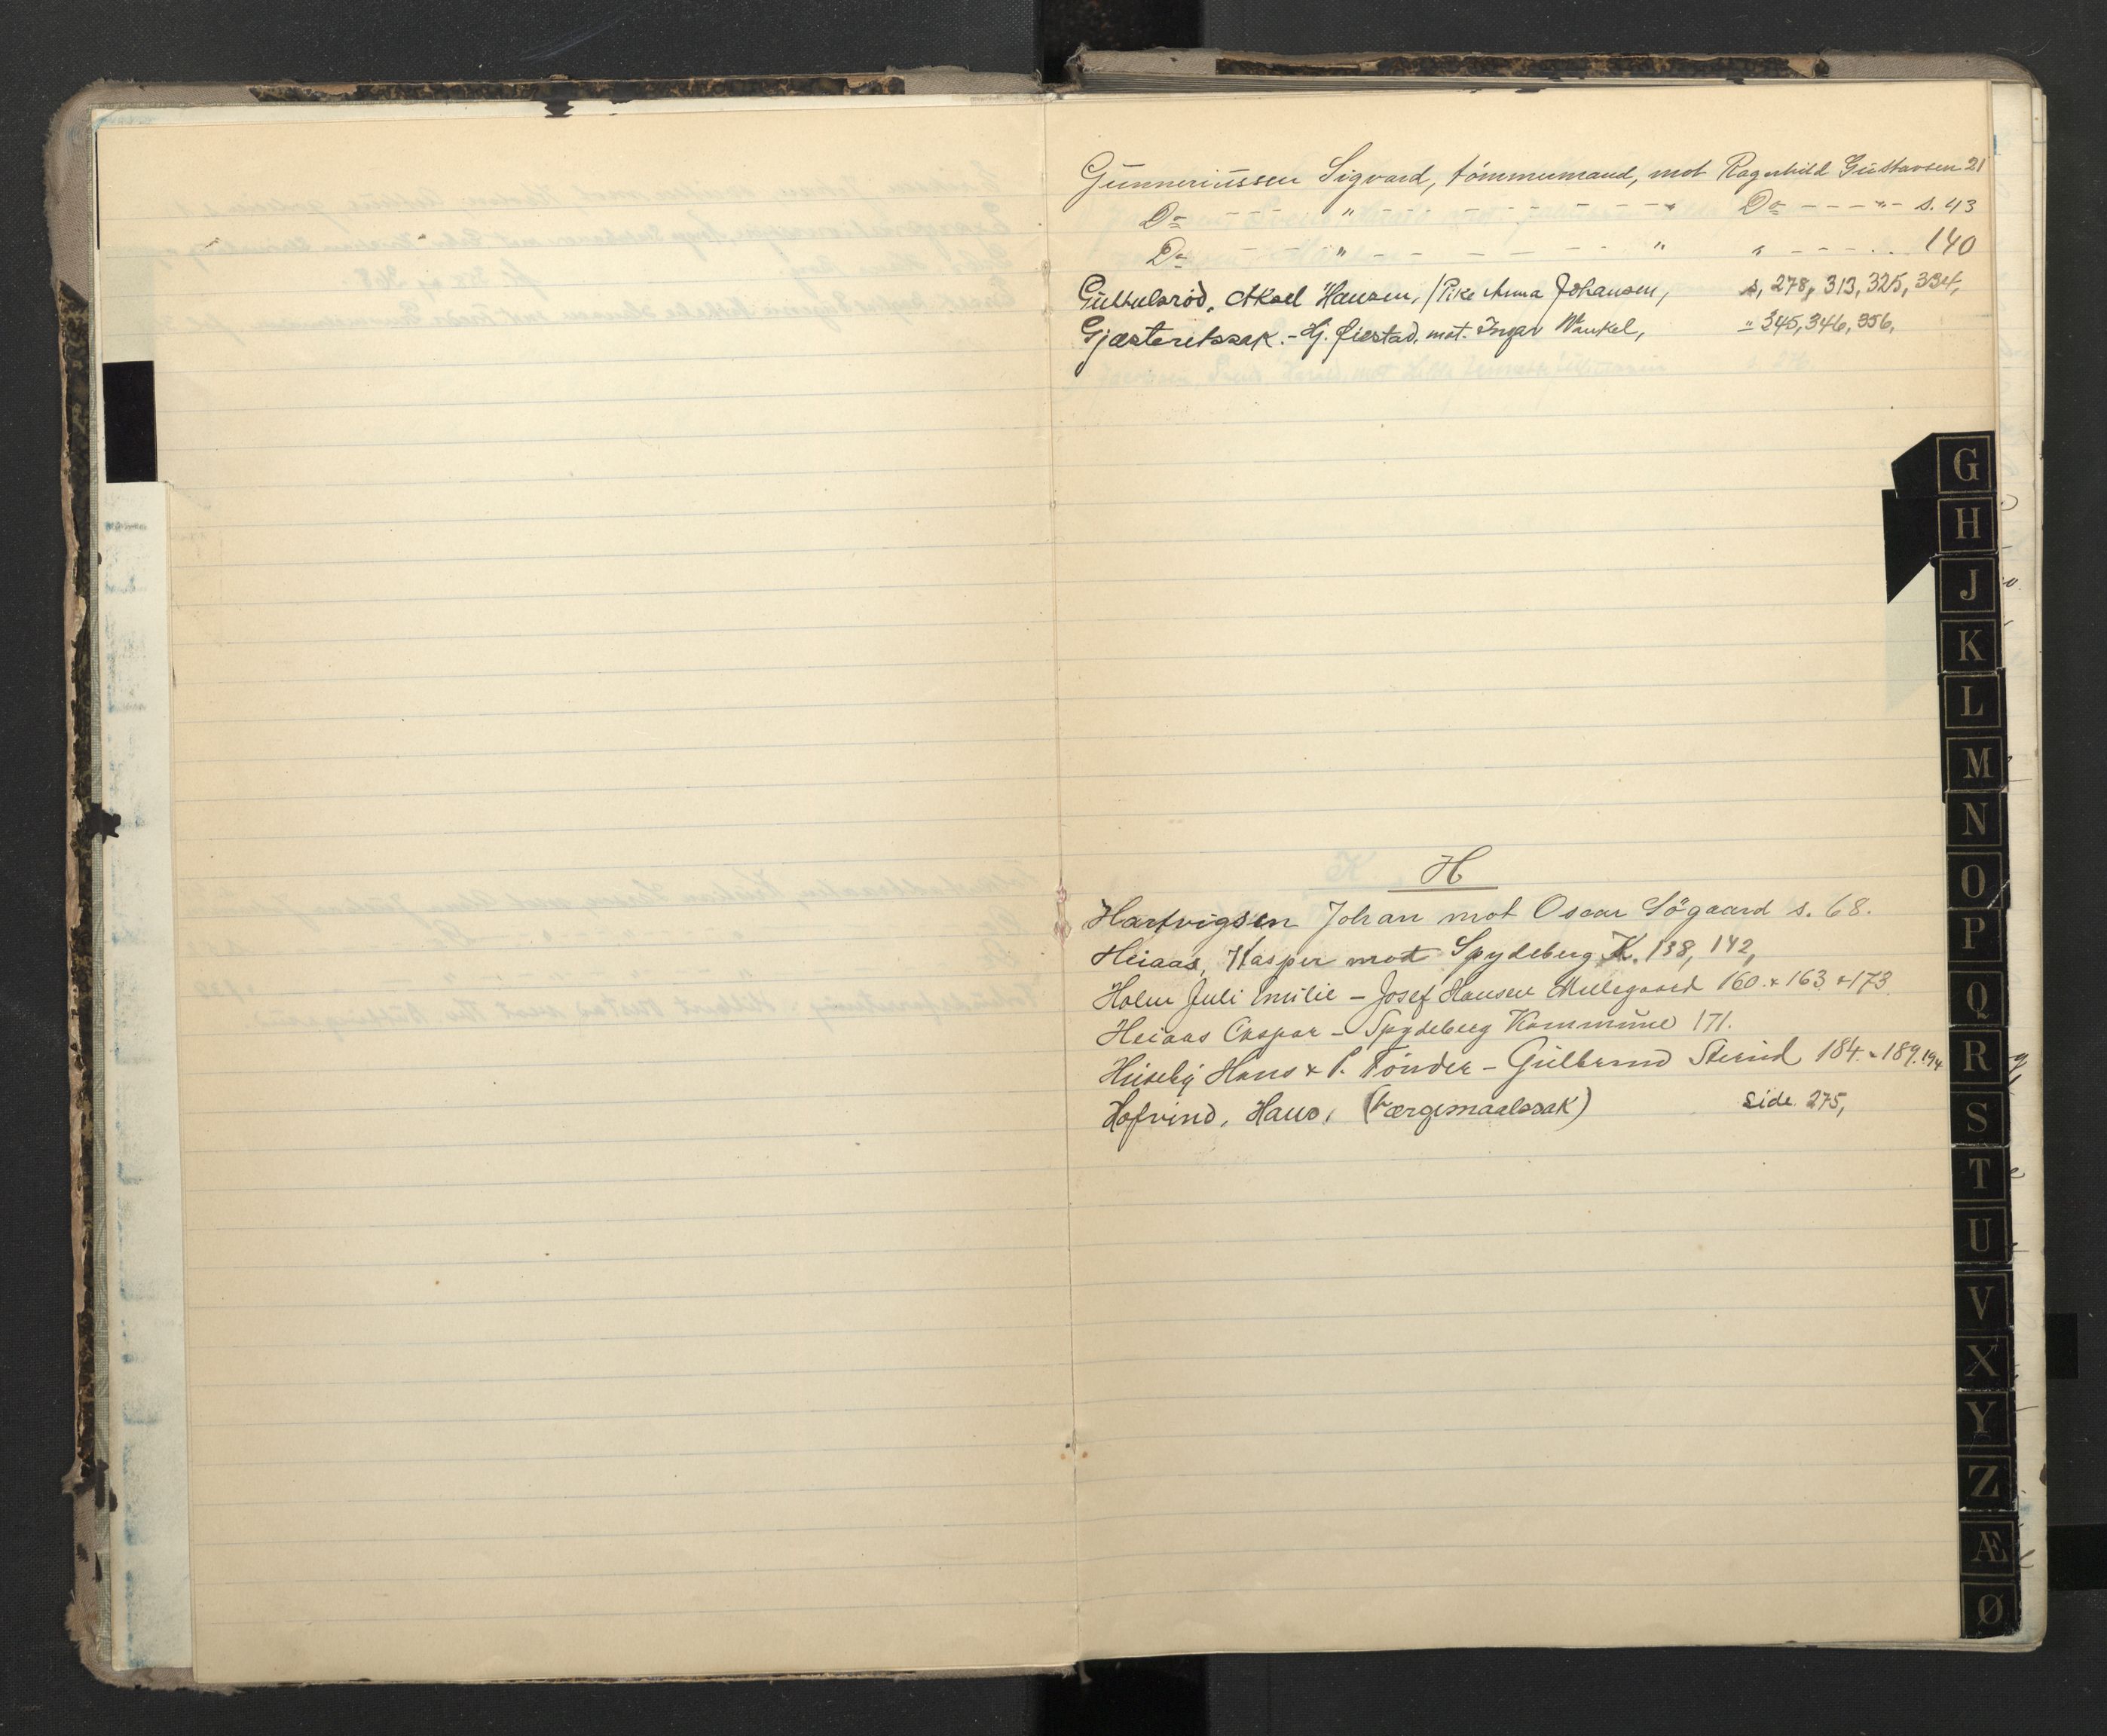 Gunneriussen Sigvard, tømmermand, mot Ragnhild Gustavsen 21
Do - - - " - - - - - - - - " Do - - - " - s. 43
Do - - - " - - - - - - " " - - - - 140
Gulbulsrød, Aksel Hansen, / Pike Anna Johansen, s, 278, 313, 325, 334,
Gjæsteretssak. - Hj. Øiestad. mot. Ingar Winkel, " 345, 346, 356,
H
Hartvigsen Johan mot Oscar Søgaard s. 68.
Heiaas, Kasper mot Spydeberg K. 138, 142,
Holm Juli Emilie - Josef Hansen Mellegaard 160. & 163 & 173
Heiaas Caspar - Spydeberg Kommune 171.
Huseby Hans & P. Tønder - Gulbrand 184. & 189. 194
Hofvind, Hans, (Værgemaalssak) side 275,
G
H
J
K
L
M
N
O
P
Q
R
S
T
U
V
X
Y
Z
Æ
Ø